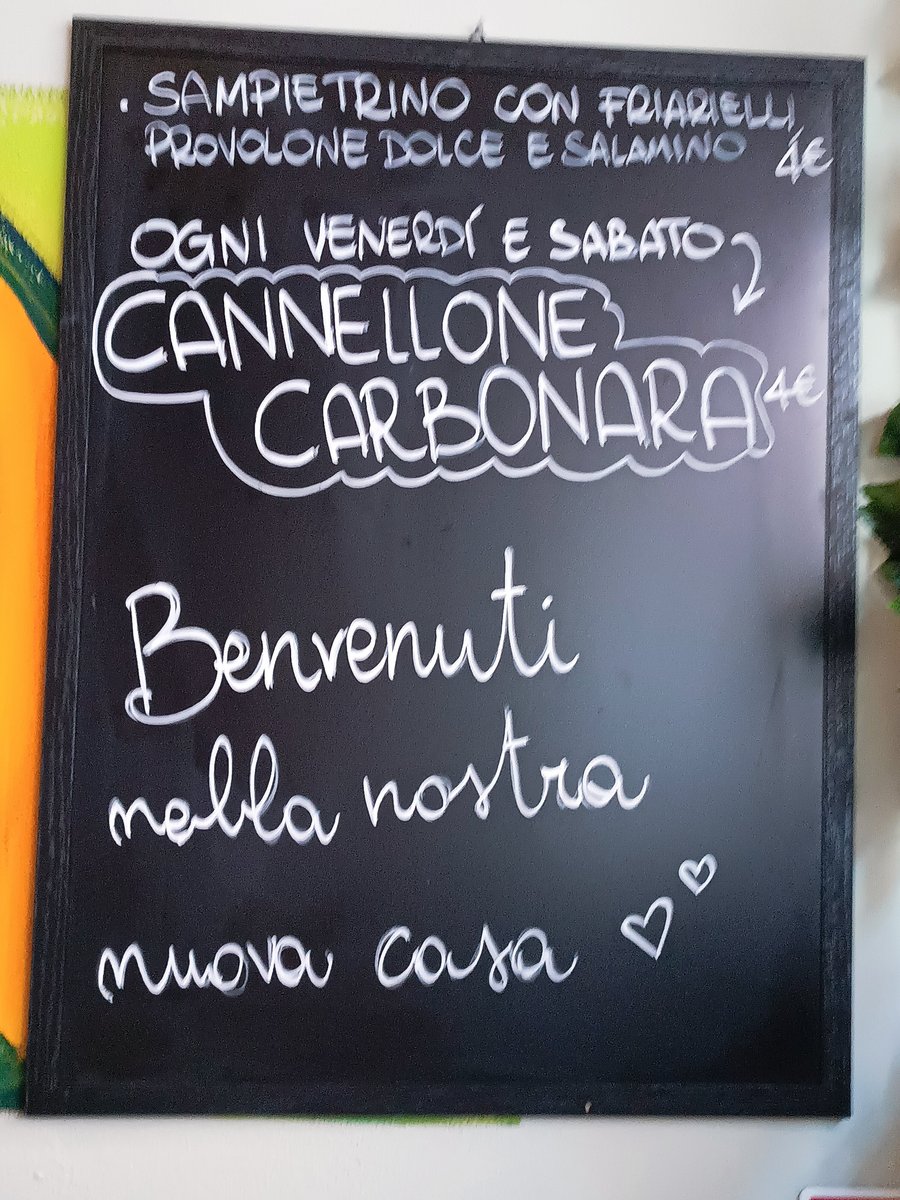 . SAMPIETRINO CON FRIARIELLI
PROVOLONE DOLCE E SALAMINO 4€
OGNI VENERDÍ E SABATO
CANNELLONE
CARBONARA 4€
Benvenuti
nella nostra
nuova casa